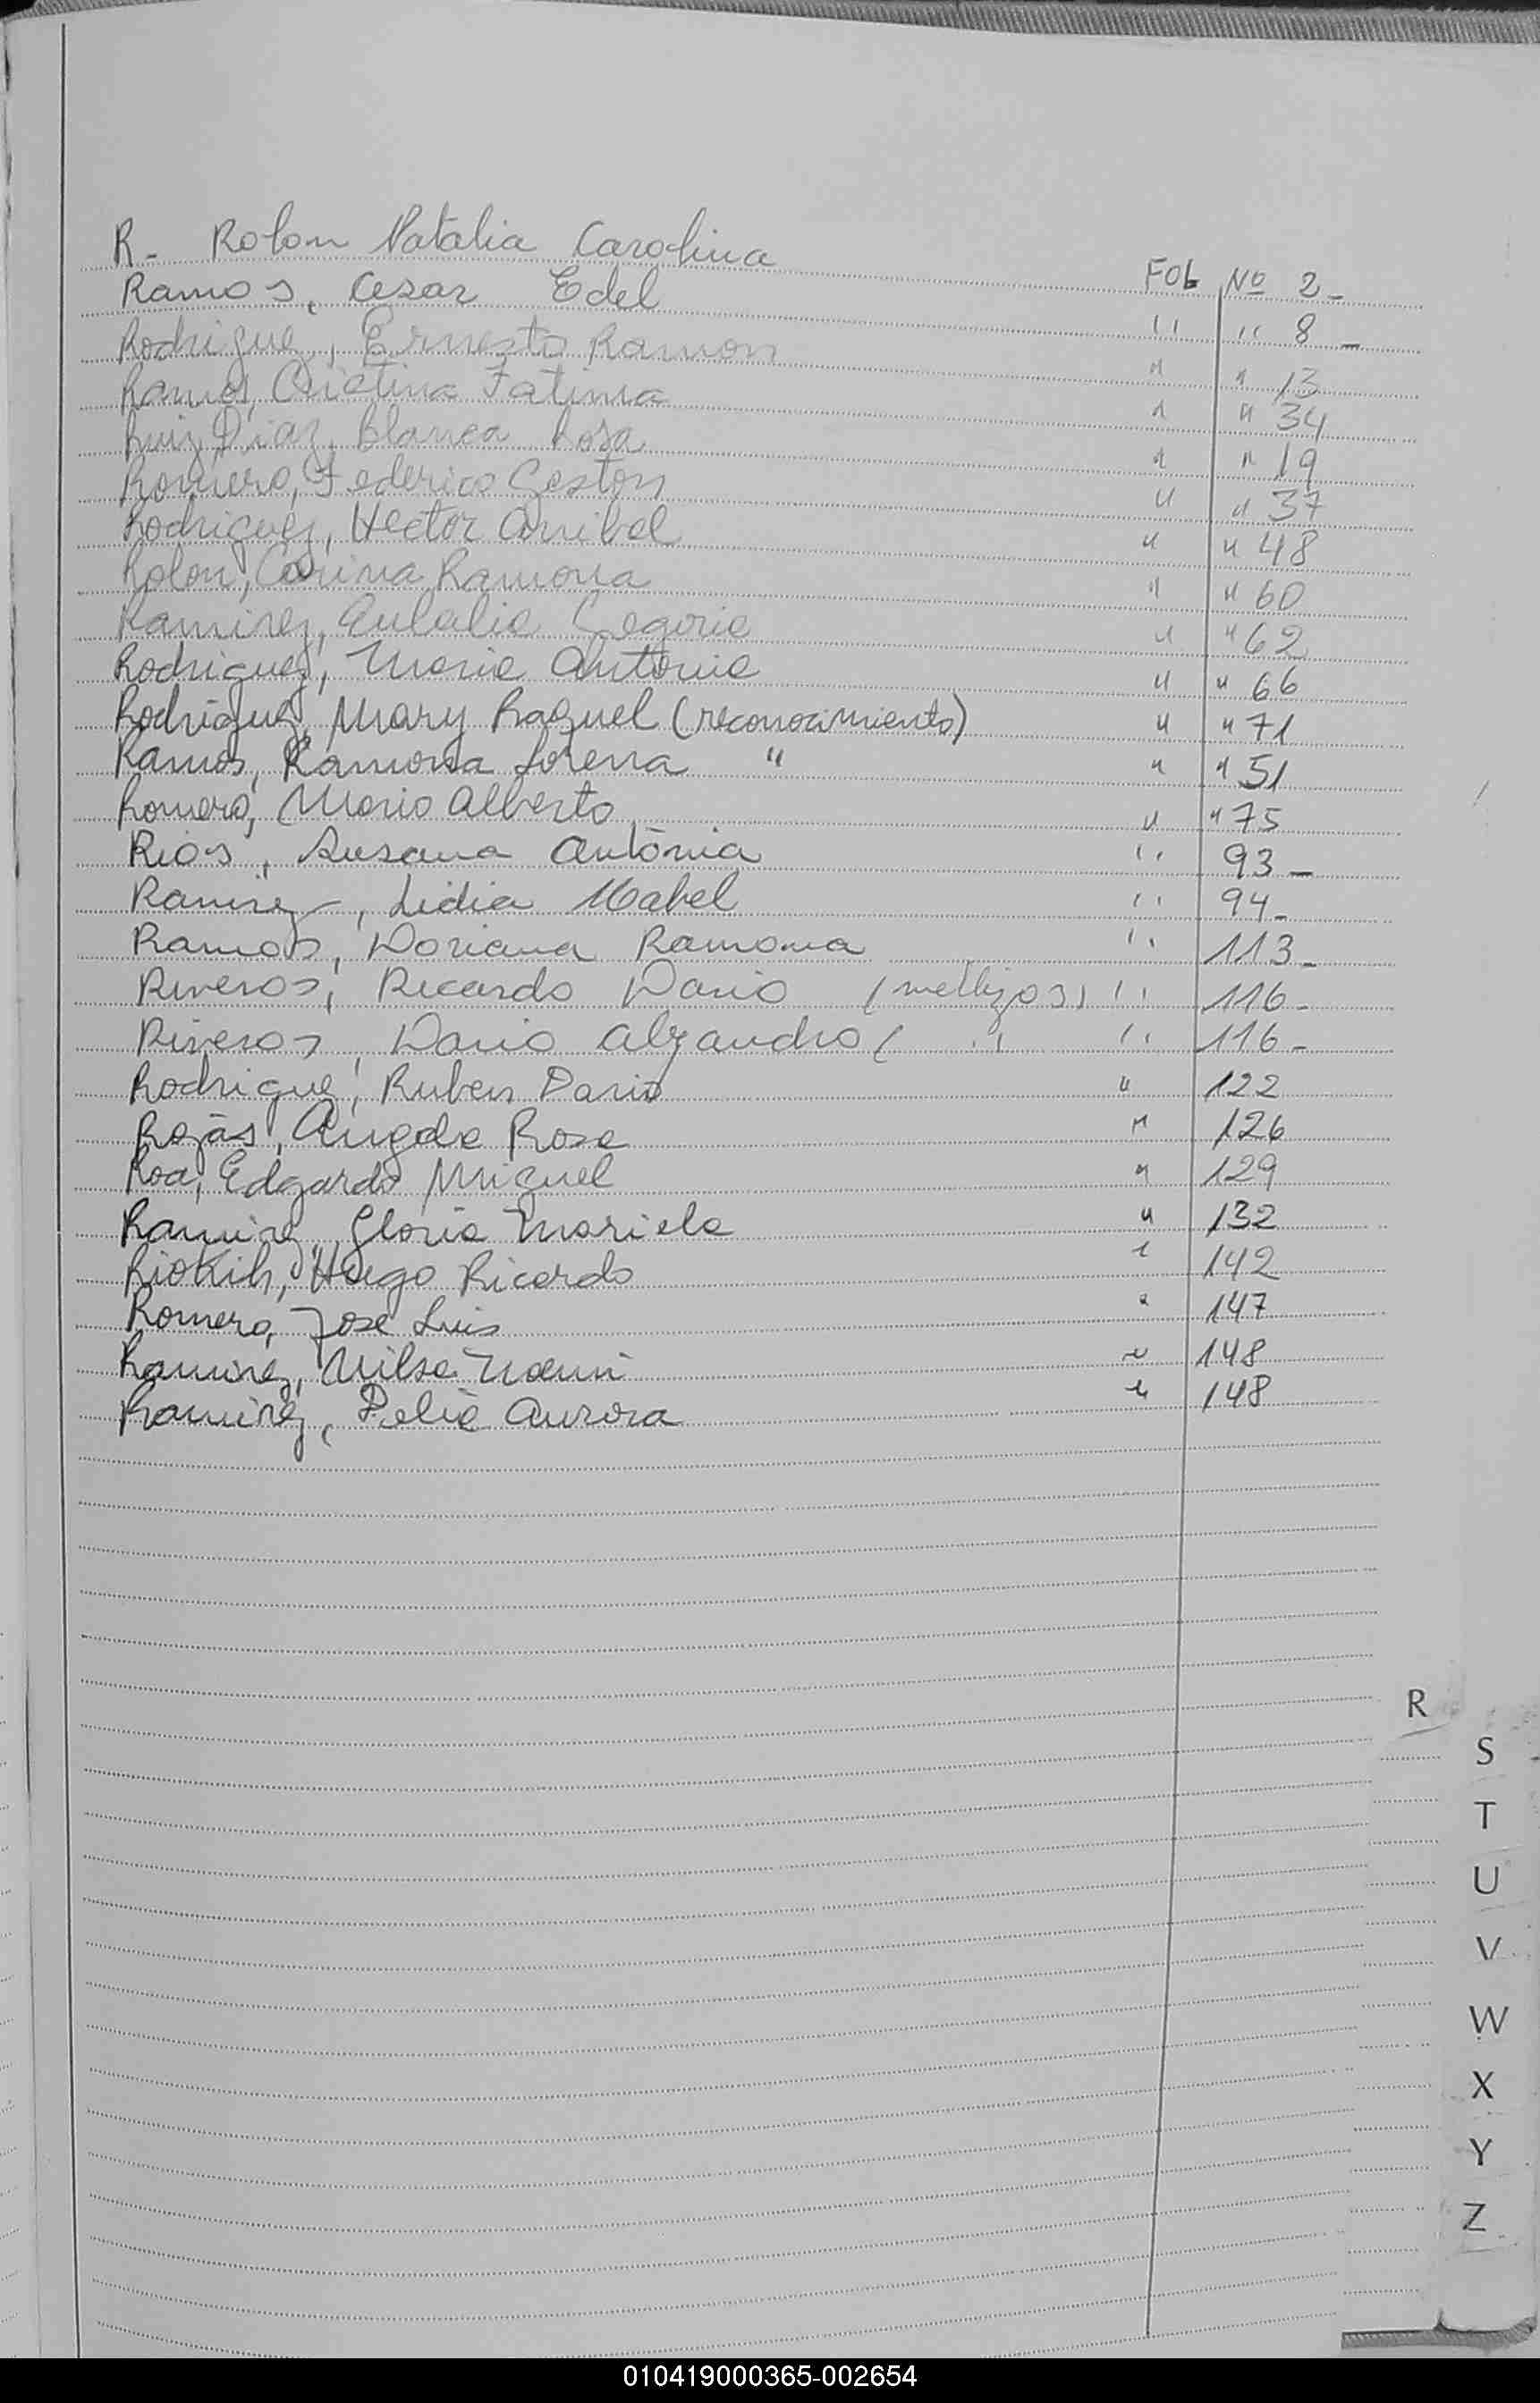 R- Rolon Natalia Carolina FOL Nº 2-
Ramos, Cesar Edel " " 8-
Rodriguez, Ernesto Ramon " " 13
Ramos, Cristina Fatima " " 34
Ruiz Diaz, Blanca Rosa " " 19
Romero, Federico Gaston " " 37
Rodriguez, Hector Anibal " " 48
Rolon, Carina Ramona " " 60
Ramirez, Eulalia " " 62
Rodriguez, Maria Antonia " " 66
Rodriguez, Mary Raquel (reconocimiento) " " 71
Ramos, Ramona Lorena " " " 51
Romero, Mario Alberto " " 75
Rios, Susana Antonia " 93-
Ramirez, Lidia Mabel " 94-
Ramos, Doriana Ramona " 113-
Riveros, Ricardo Dario (mellizos) " 116-
Riveros, Dario Alejandro ( " " 116-
Rodriguez, Ruben Dario " 122
Rojas, Angela Rosa " 126
Roa, Edgardo Miguel " 129
Ramirez, Gloria Mariela " 132
Hugo Ricardo " 142
Romero, Jose Luis " 147
Ramirez, Nilsa Noemi " 148
Ramirez, Delia Aurora " 148
R
S
T
U
V
W
X
Y
Z
010419000365-002654